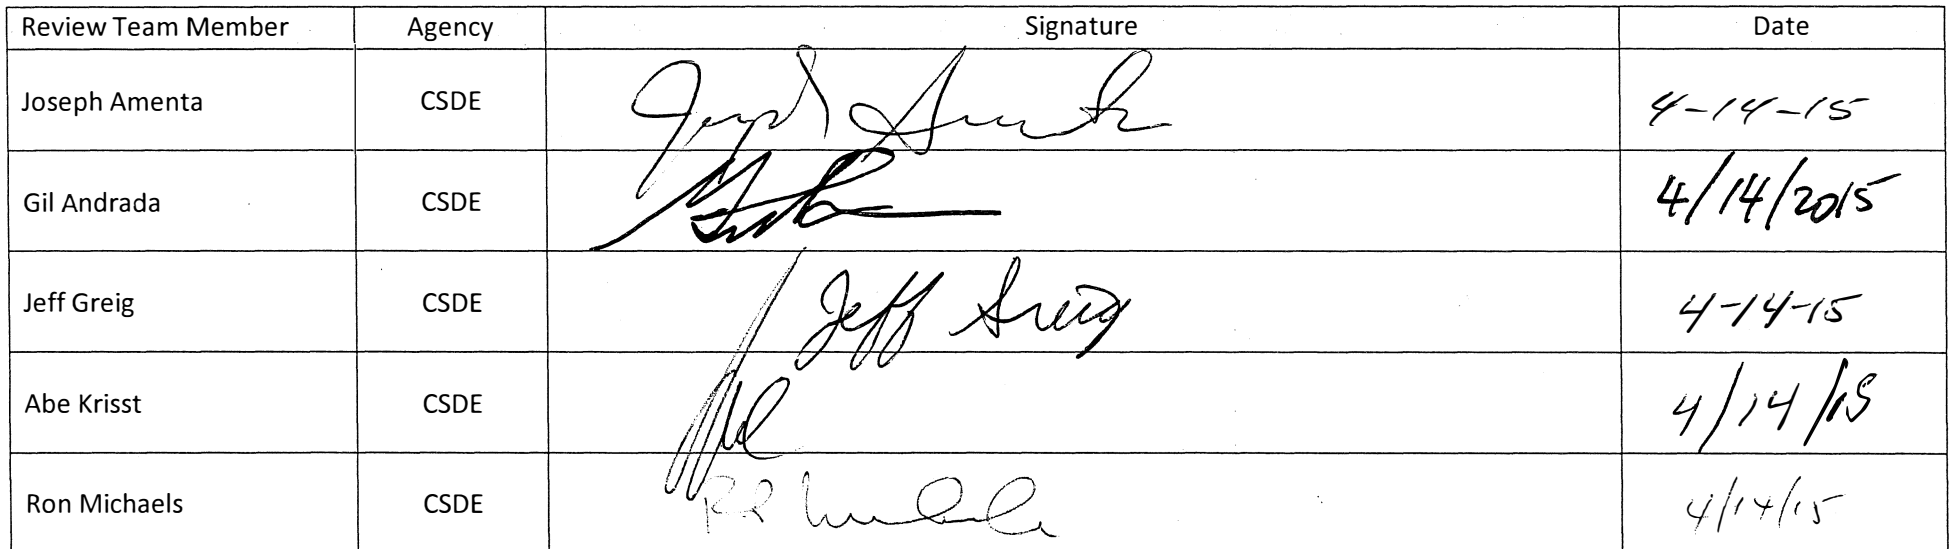 Review Team Member Agency Signature Date
Joseph Amenta CSDE Joseph Amenta 4-14-15
Gil Andrada CSDE 4/14/2015
Jeff Greig CSDE Jeff Greig 4-14-15
Abe Krisst CSDE 4/14/15
Ron Michaels CSDE 4/14/15